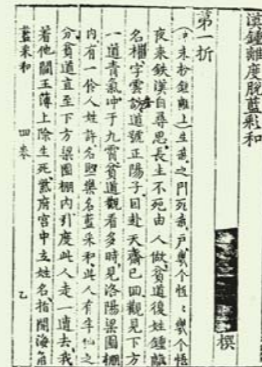 漢鍾離度脫藍彩和
撰
第一折
(沖末扮鍾離上)生我之門死我戶幾个惺〻幾个悟
夜來鉄漢自尋思長生不死由人做貧道複姓鍾離
名權字雲訪道號正陽子因赴天齋已回觀見下方
一道青氣冲于九霄貧道觀看多時見洛陽梁園棚
内有一伶人姓許名堅樂名藍采和此人有半仙之
分貧道直至下方梁園棚内引度此人走一遭去我
着他閻王簿上除生死紫府宮中立姓名指開海角
藍采和
四奏
乙